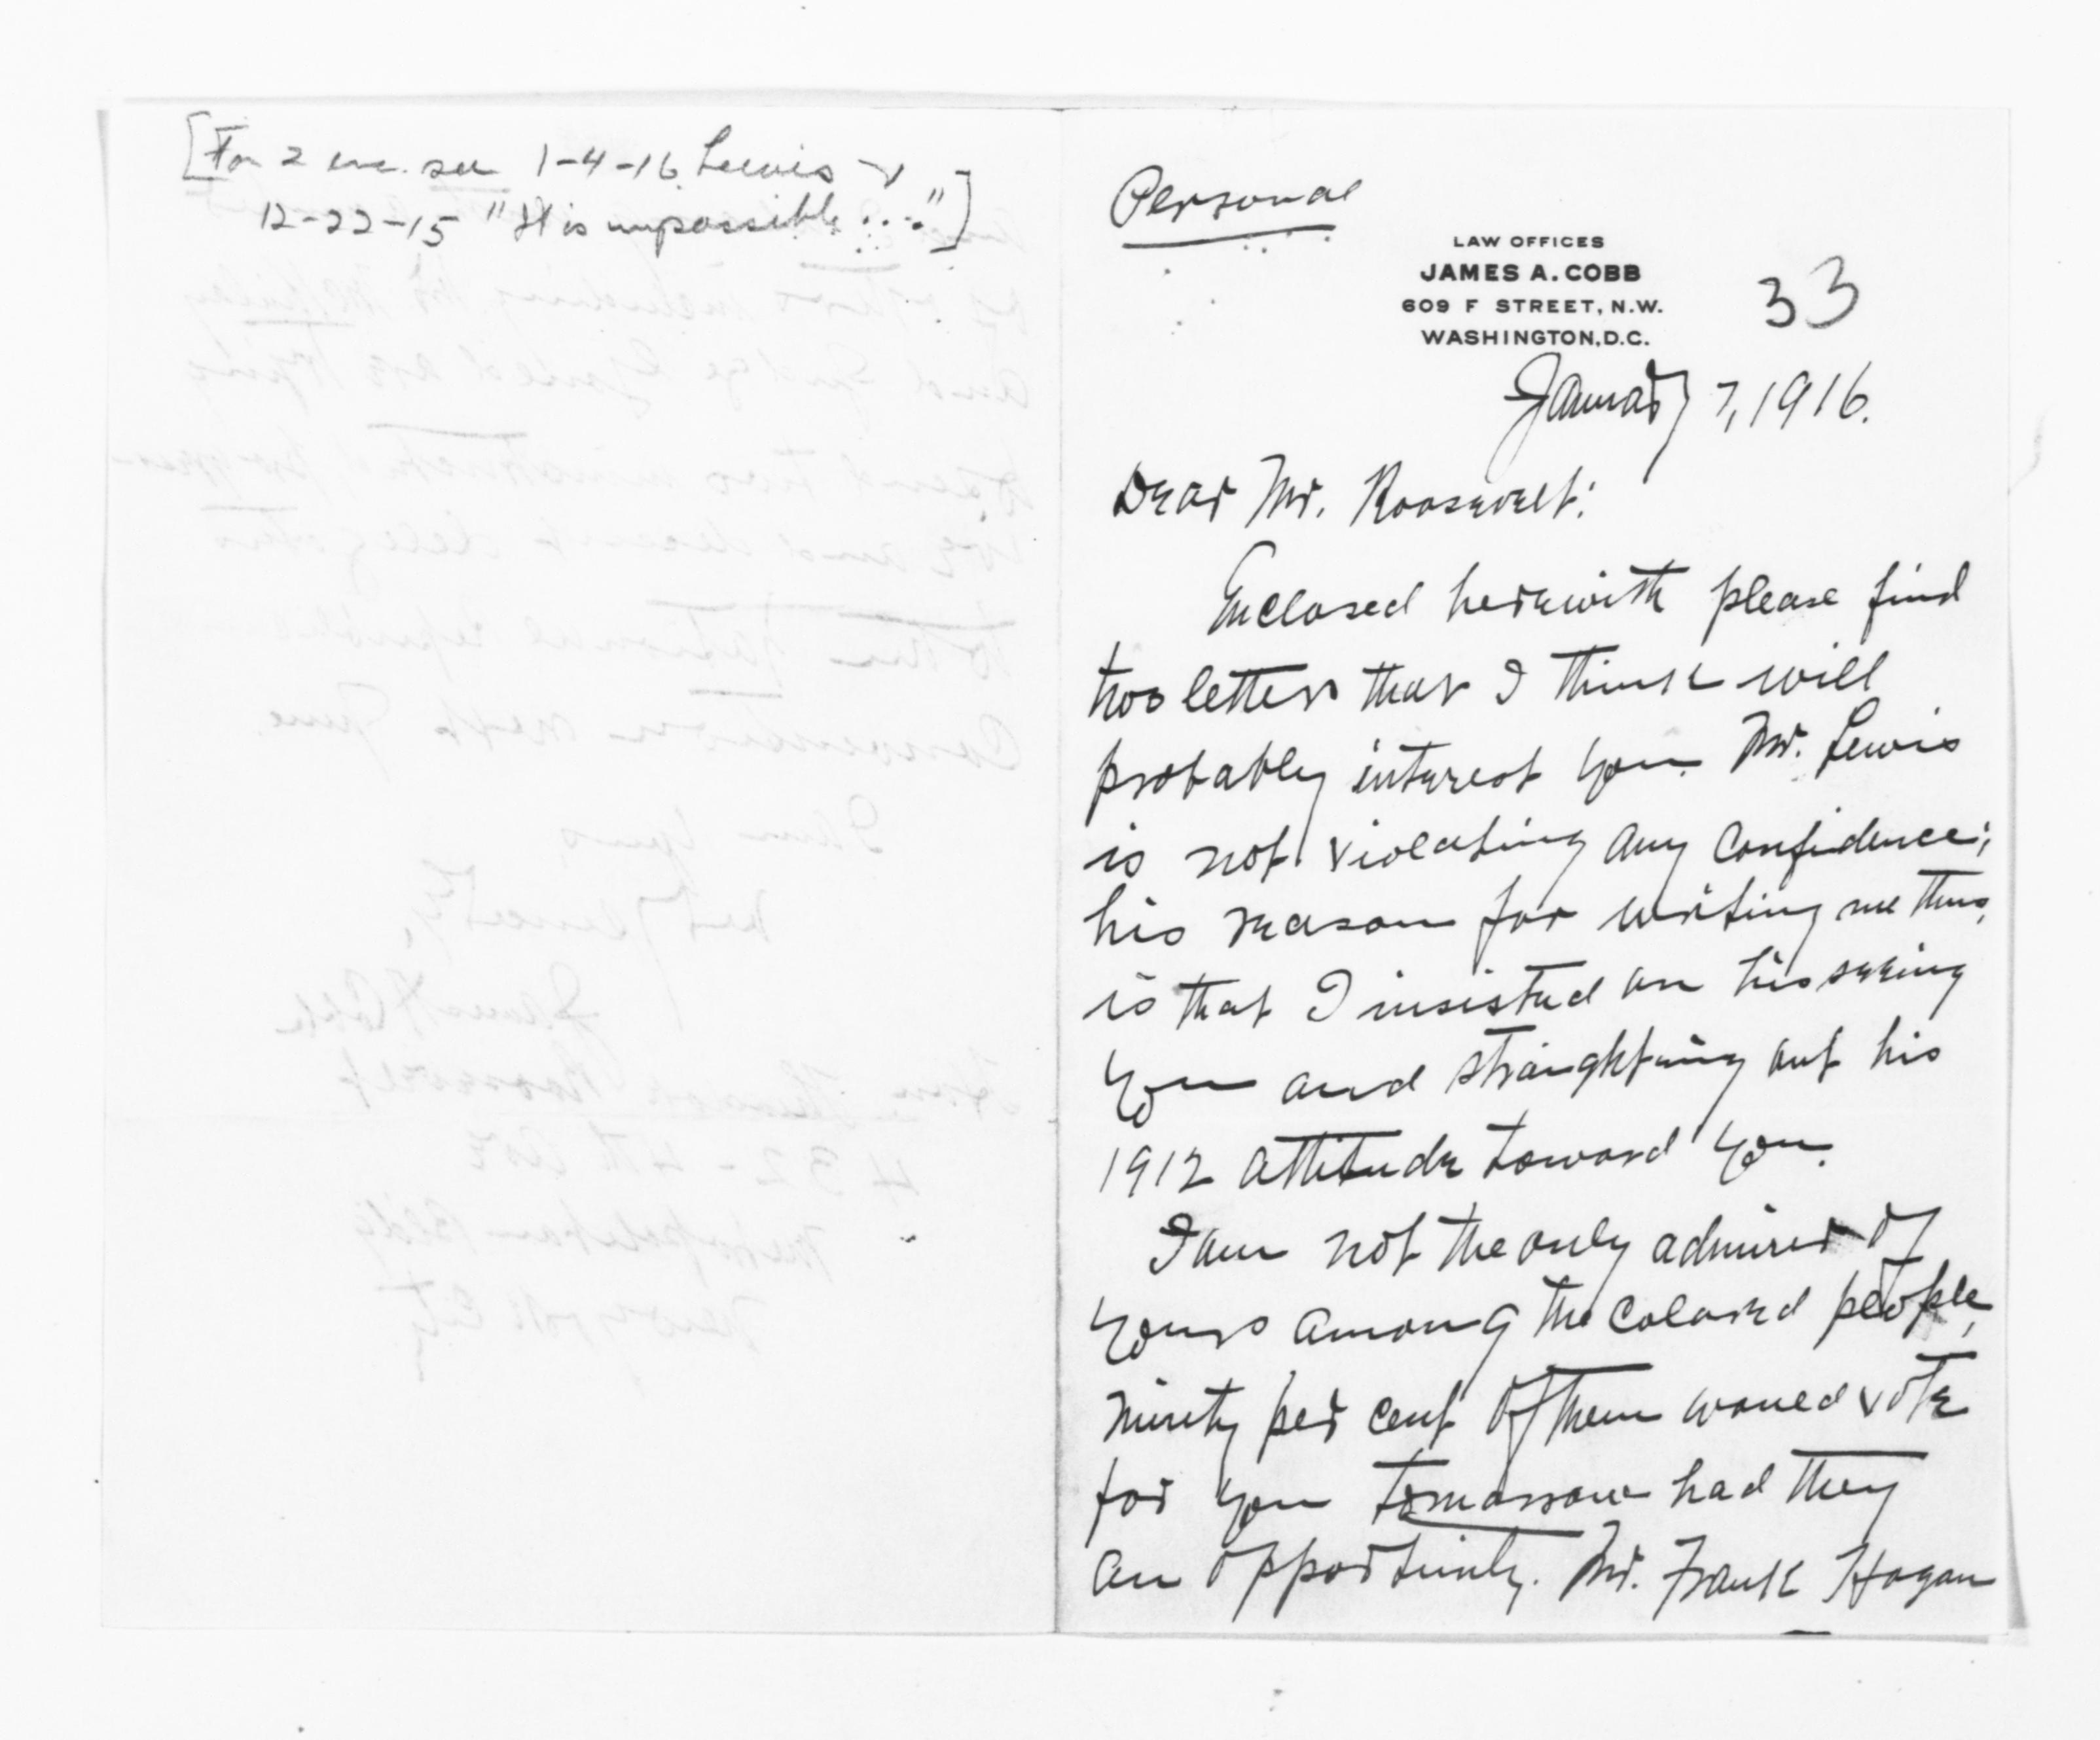 [For 2 enc. see 1-4-16 Lewis +
12-22-15 "It is impossible ...."]
Personal
LAW OFFICES
JAMES A. COBB
609 F STREET, N.W.
WASHINGTON, D.C.
33
January 7, 1916.
Dear Mr. Roosevelt:
Enclosed herewith please find
two letters that I think will
probably interest you. Mr. Lewis
is not violating any confidence;
his reason for writing me thus,
is that I insisted on his seeing
you and straightning out his
1912 attitude toward you.
I am not the only admirer of
yours among the colored people,
ninety per cent of them would vote
for you tomorrow had they
an opportunity. Mr. Frank Hogan